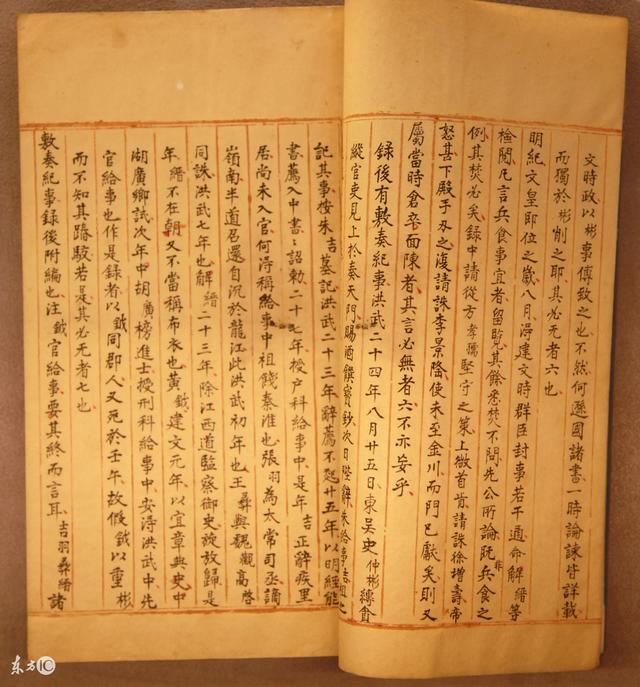 文時政以彬事傳致之也不然何遜國諸書一時論諫皆詳載
而獨於彬削之耶其必无者六也
明紀文皇即位之歲八月得建文時群臣封事若干通命解縉等
檢閱凡言兵食事宜者留覽其餘悉焚不問先公所論既非兵食之
例其焚必矣錄中請從方孝孺堅守之策上微首肯請誅徐增壽帝
怒甚下殿手刃之復請誅李景隆使未至金川而門已獻矣則又
屬當時倉卒面陳者其言必無者六不亦妄乎
錄後有敷奏紀事洪武二十四年八月廿五日東吳史仲彬縛貪
縱官吏見上於奏天門賜酒饌寶鈔次日陛辭朱給事吉祖之
記其事按朱吉墓記洪武二十三年辭薦不起廿五年以明經能
書薦入中書〻詔勅二十七年授戶科給事中是年吉正辭疾里
居尚未入官何得稱給事中祖餞秦淮也張羽為太常司丞謫
嶺南半道召還自沉於龍江此洪武初年也王彝與魏觀高啓
同誅洪武七年也解縉二十三年除江西道監察御史旋放歸是
年縉不在朝又不當稱布衣也黃鉞建文元年以宜章典史中
湖廣鄉試次年中胡廣榜進士授刑科給事中安得洪武中先
官給事也作是錄者以鉞同郡人又死於壬年故假鉞以重彬
而不知其踳駁若是其必无者七也
敷奏紀事錄後附編也注鉞官給事要其終而言耳吉羽彝縉諸
东方IC